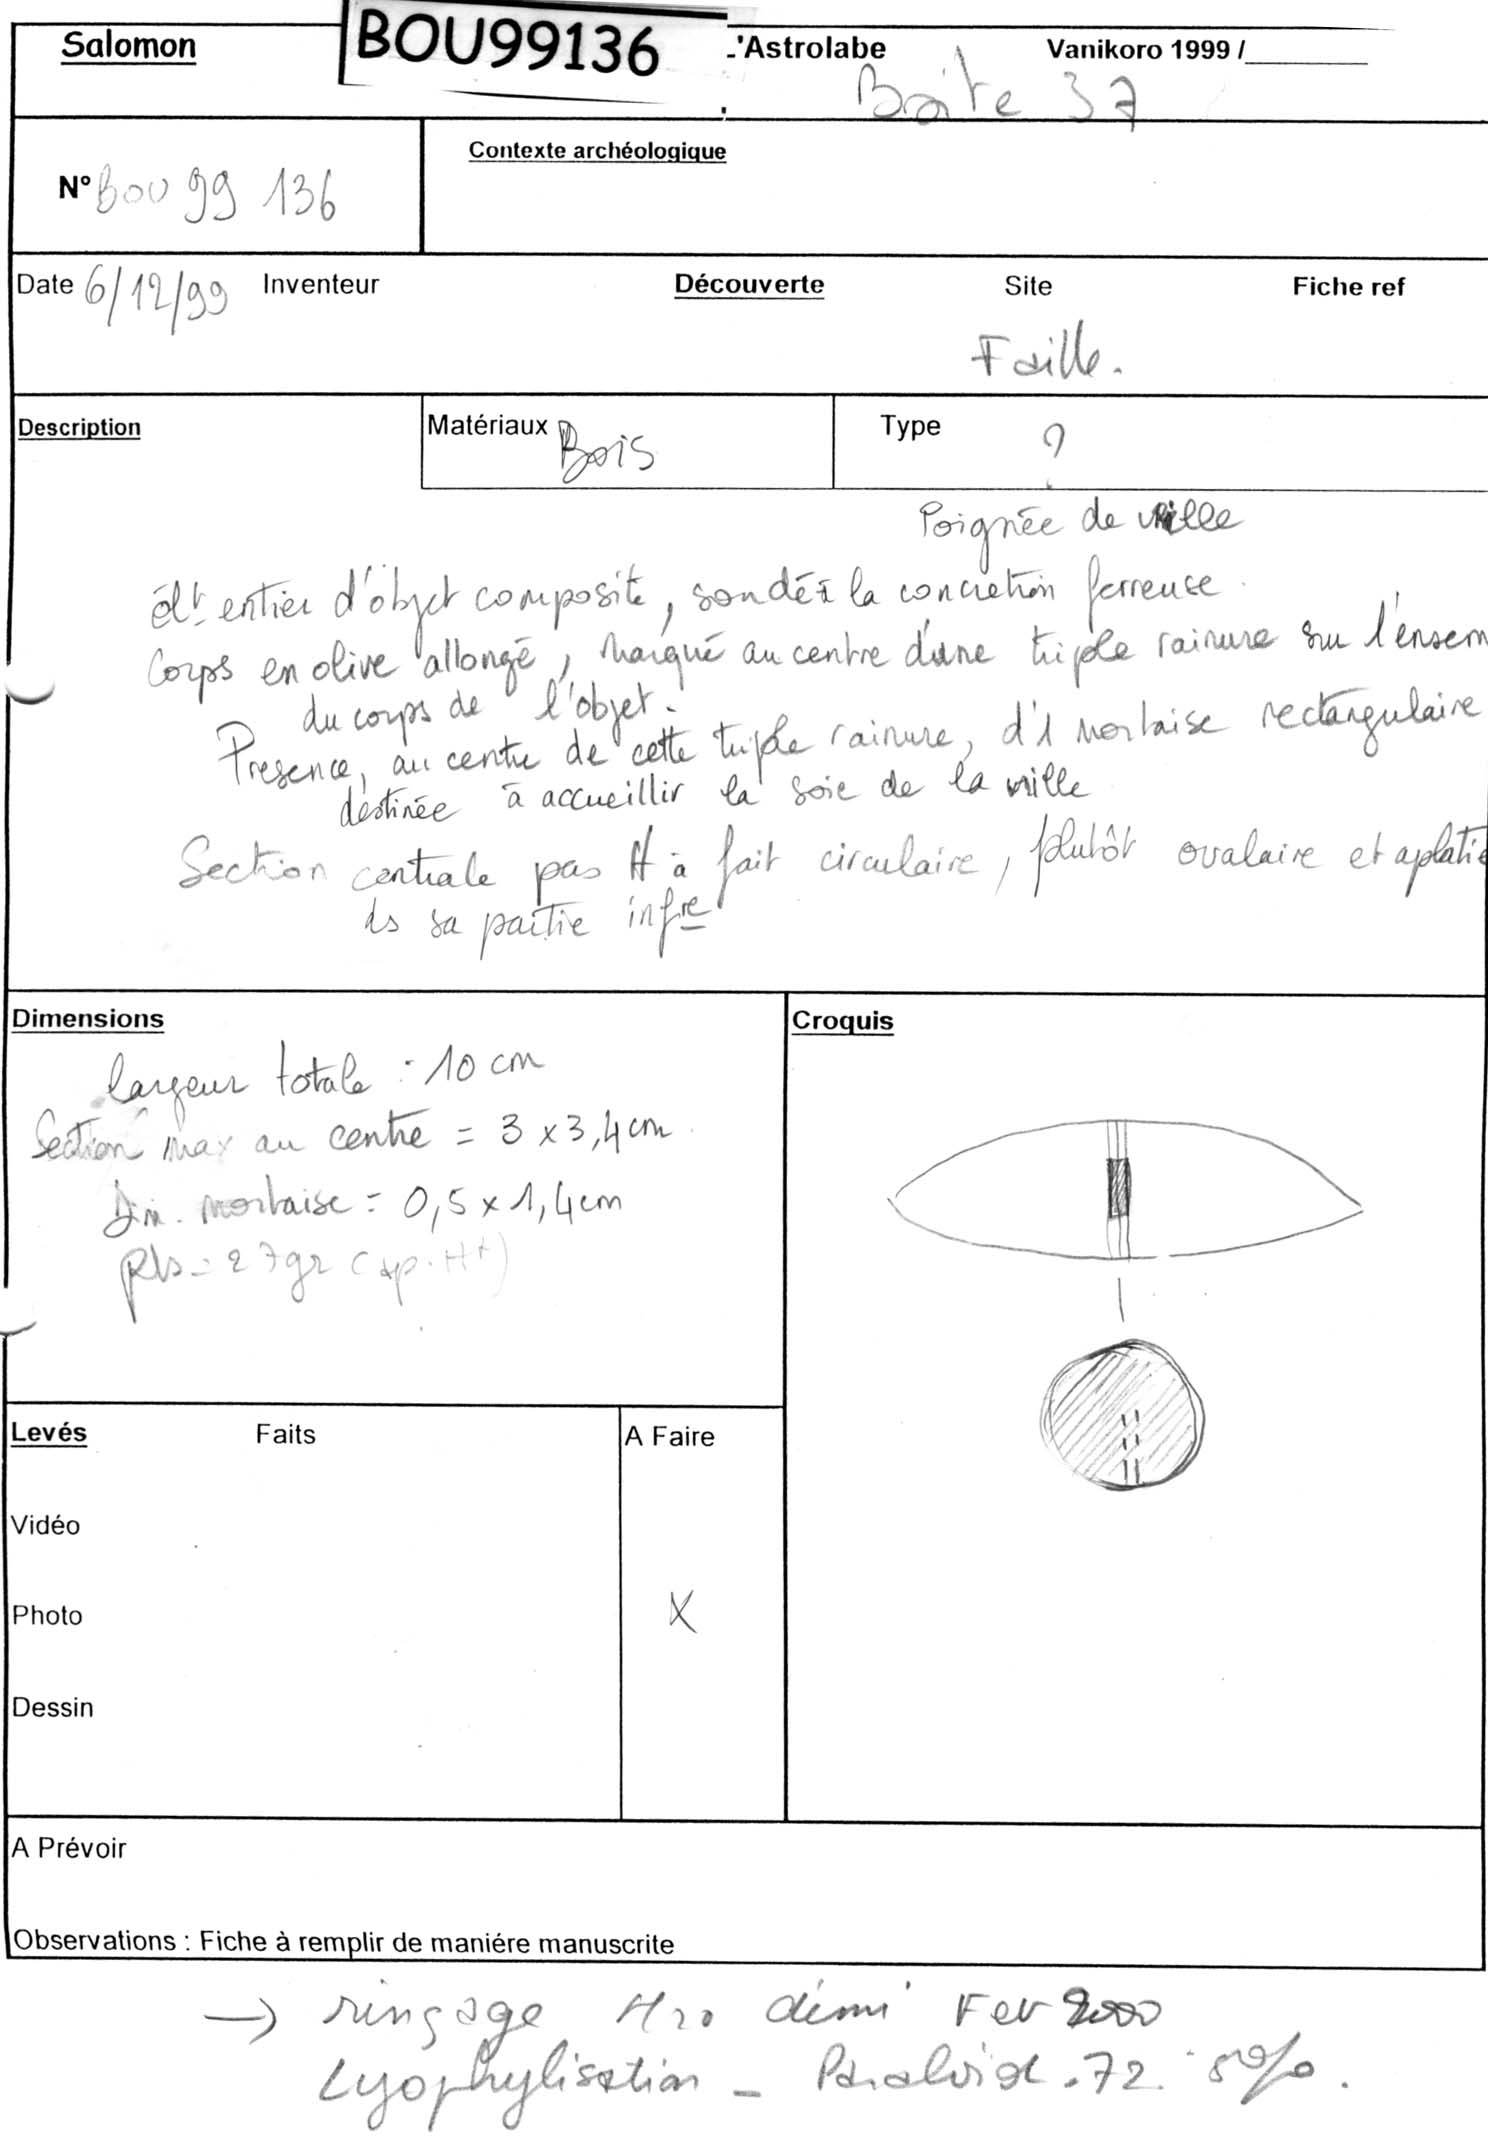 Salomon BOU99136 'Astrolabe Vanikoro 1999 /
Boite 37
N° BOU 99 136
Contexte archéologique
Date 6/12/99 Inventeur Découverte Site Fiche ref
Faille.
Description Matériaux Bois Type ?
Poignée de vrille
élt entier d'objet composite, à la concretion ferreuse.
Corps en olive allongé, marqué au centre d'une triple rainure sur l'ensem
du corps de l'objet.
Presence, au centre de cette triple rainure, d'1 mortaise rectangulaire
destinée à accueillir la soie de la vrille
Section centrale pas tt à fait circulaire, plutôt ovalaire et aplatie
ds sa partie infre
Dimensions
largeur totale : 10 cm
Section max au centre = 3 x 3,4 cm
Dim. mortaise = 0,5 x 1,4 cm
Pds = 27gr
Croquis
Levés Faits A Faire
Vidéo
Photo X
Dessin
A Prévoir
Observations : Fiche à remplir de maniére manuscrite
→ rinçage H2O démi Fev 2000
Lyophylisation - Paraloid .72. 5%.